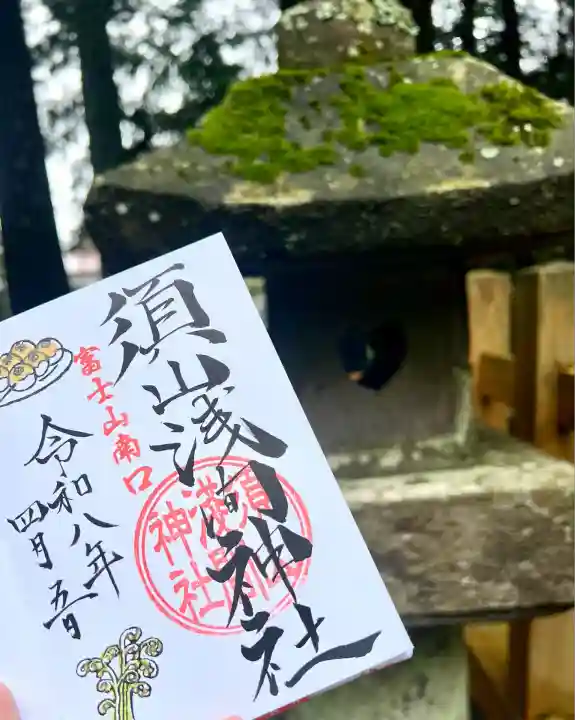 富士山南口
須山浅間神社
須山浅間神社
令和八年
四月五日